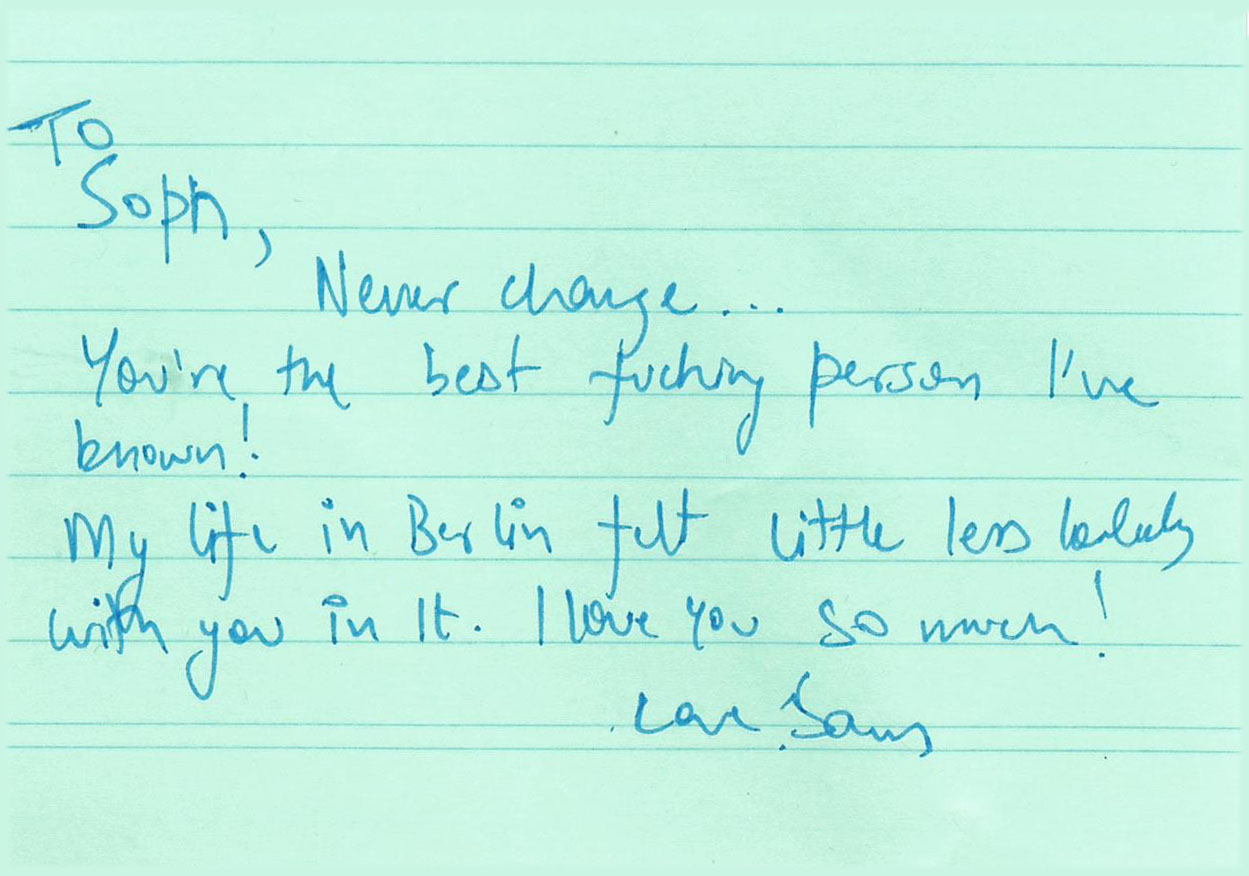 To
Soph,
Never change...
You're the best fucking person I've
known!
My life in Berlin felt little less
with you in It. I love you so much!
Love